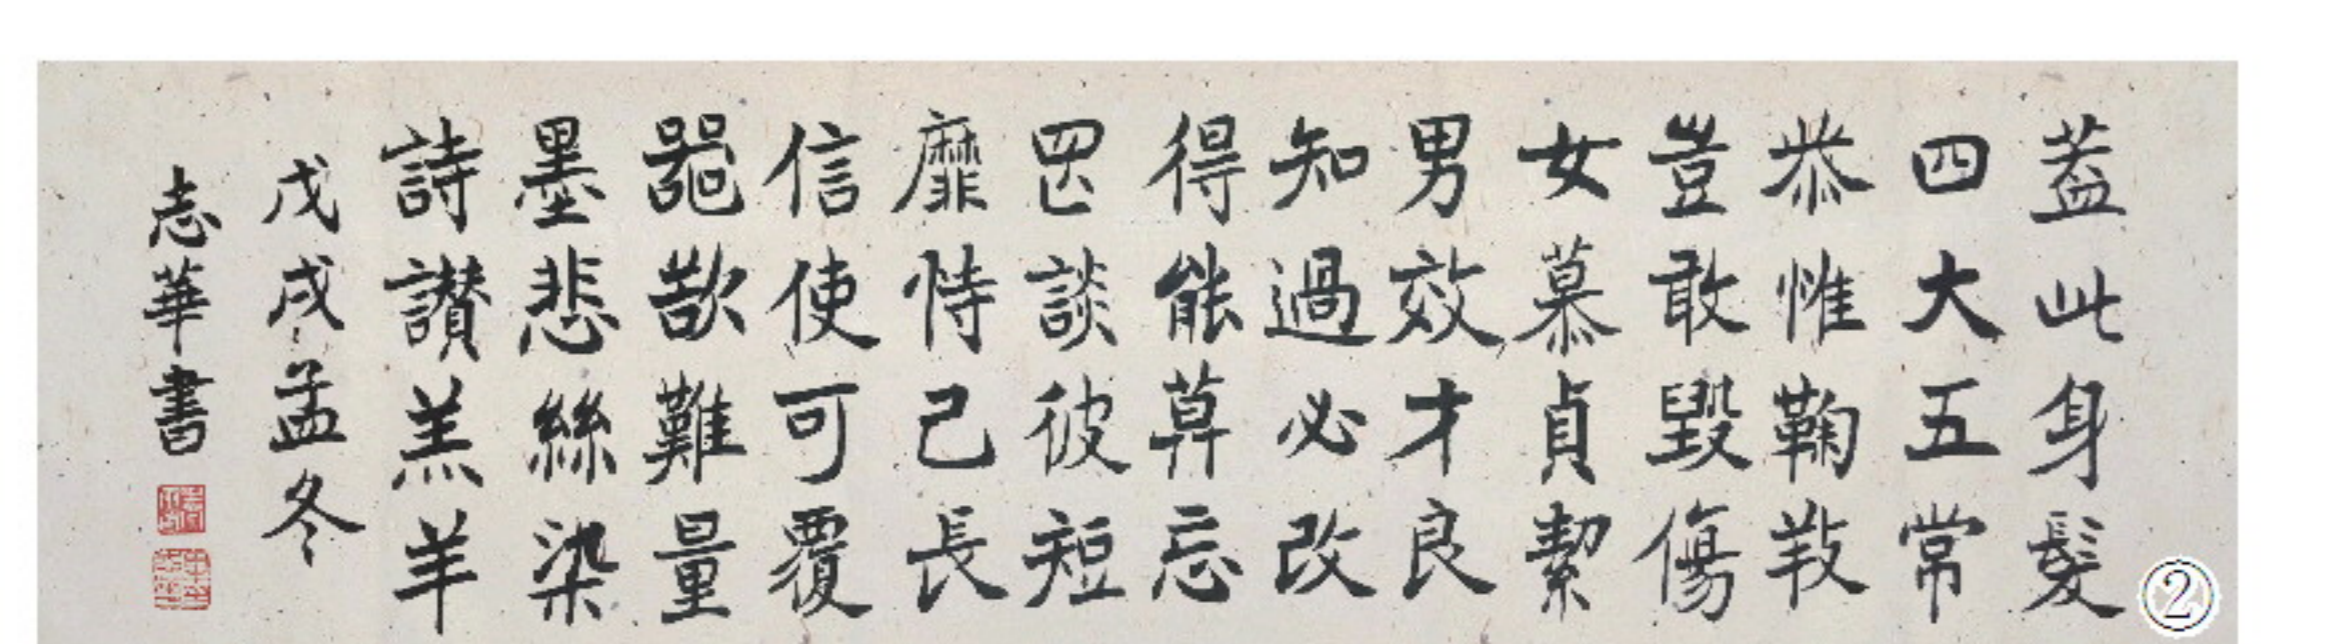 蓋此身髮
四大五常
恭惟鞠養
豈敢毀傷
女慕貞絜
男效才良
知過必改
得能莫忘
罔談彼短
靡恃己長
信使可覆
器欲難量
墨悲絲染
詩讚羔羊
戊戌孟冬
志華書
②